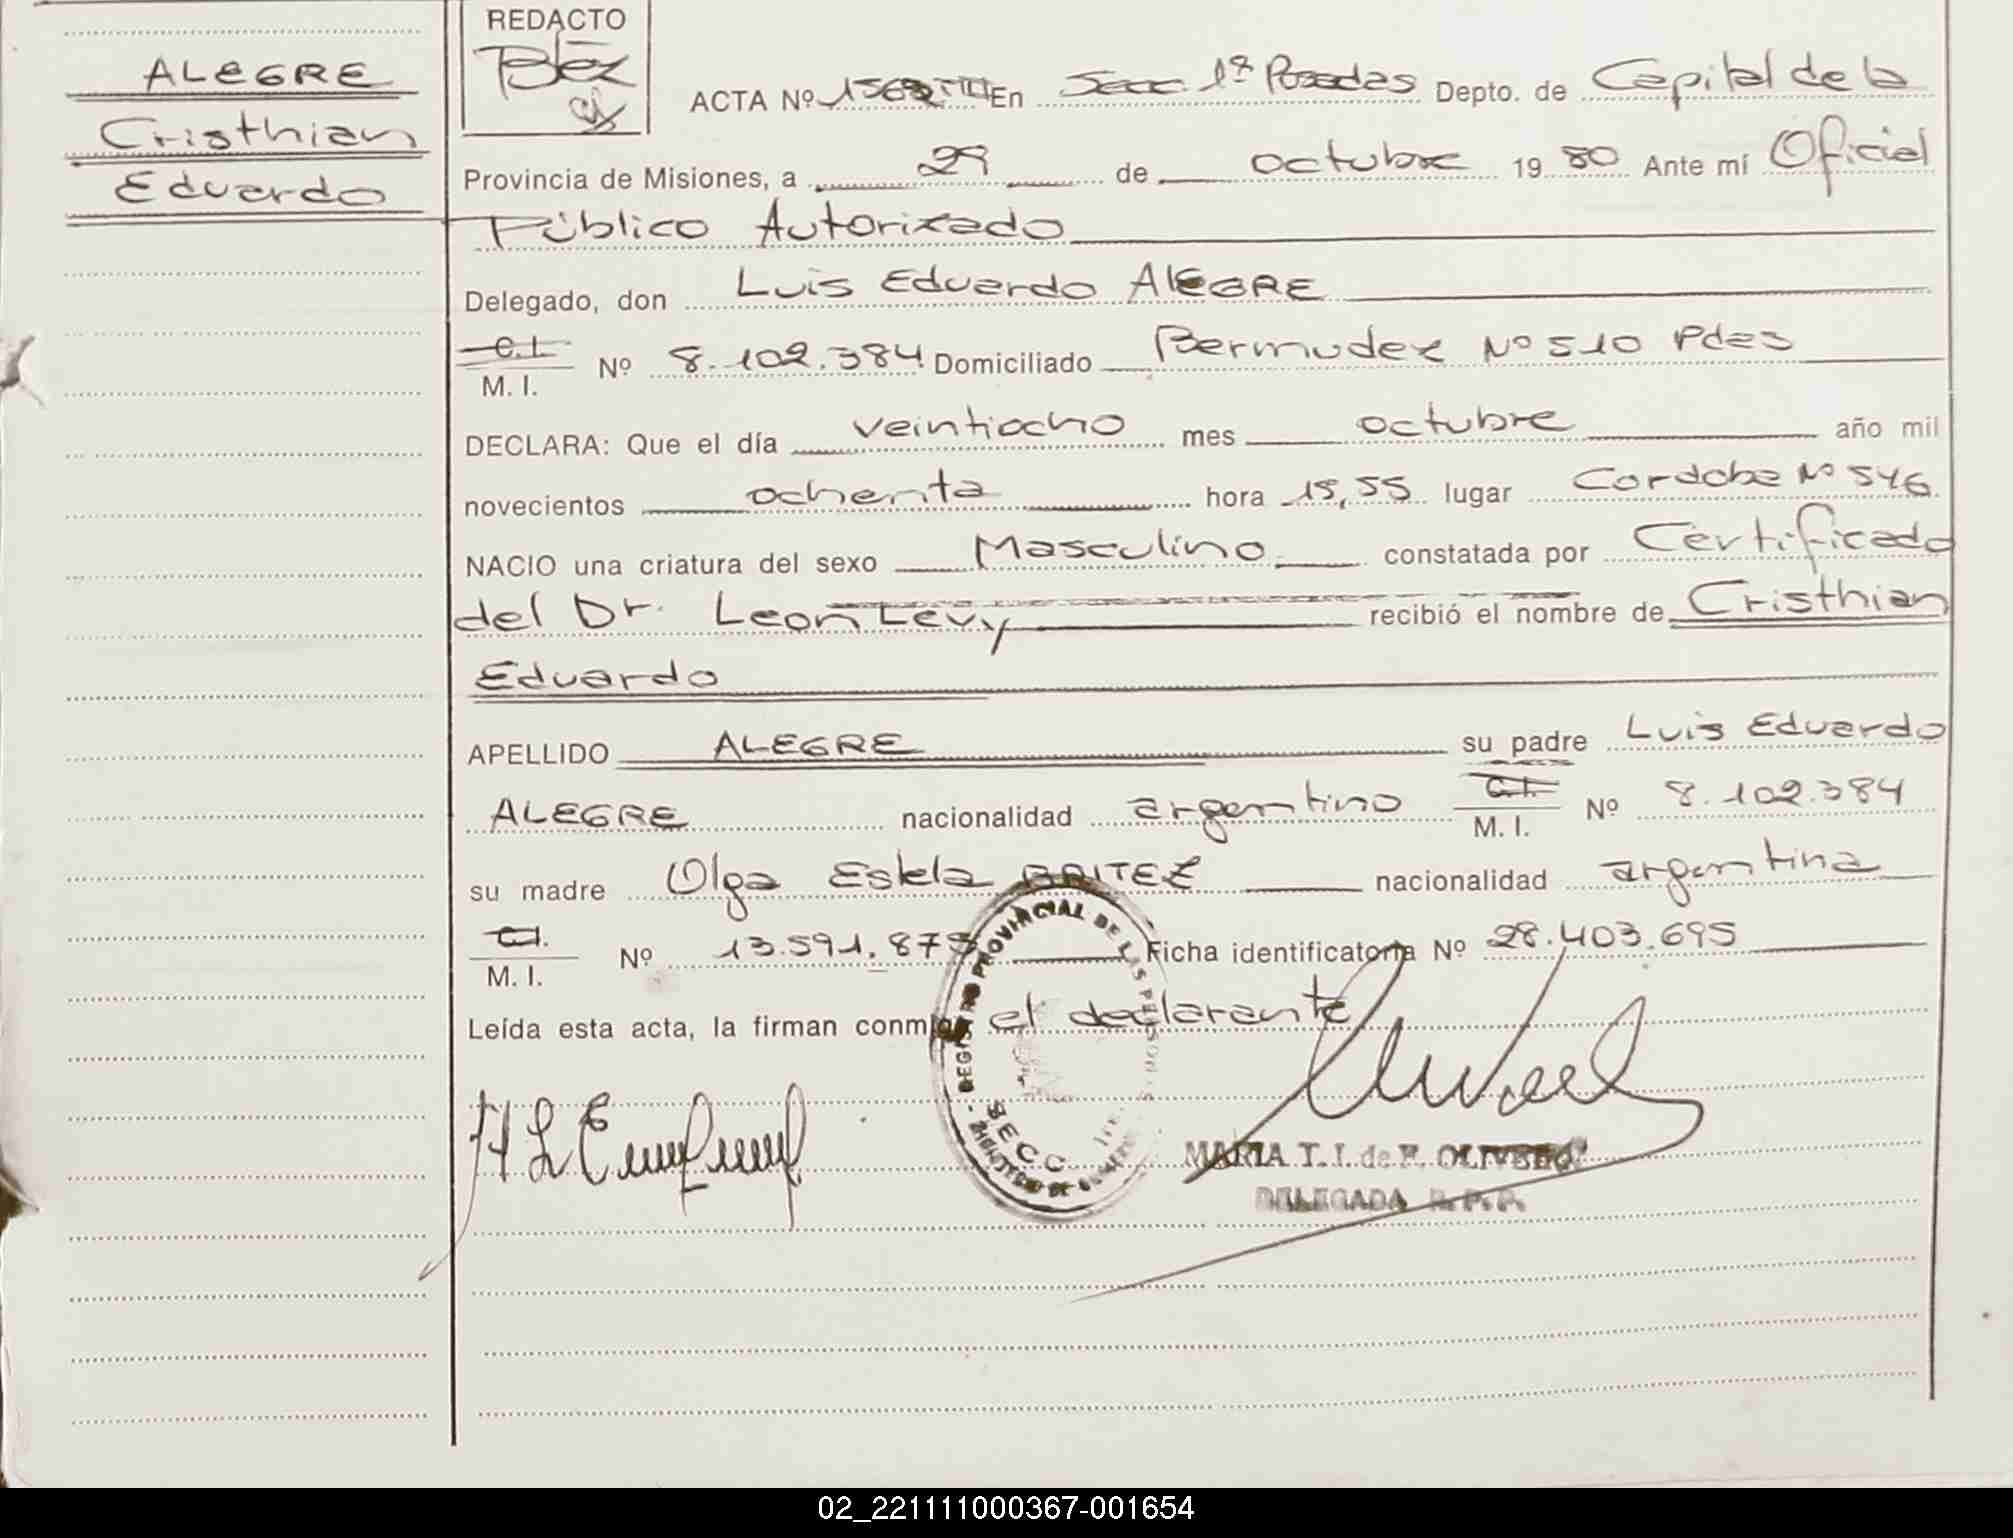 ALEGRE
Cristhian
Eduardo
REDACTO
ACTA Nº En Secc. 1ª Posadas Depto. de Capital de la
Provincia de Misiones, a 29 de octubre 19 80 Ante mí Oficial
Público Autorizado
Delegado, don Luis Eduardo ALEGRE
C.I.
M. I. Nº 8.102.384 Domiciliado Bermudez Nº 510 Pdas
DECLARA: Que el día veintiocho mes octubre año mil
novecientos ochenta hora 15,55 lugar Cordoba Nº 546
NACIO una criatura del sexo Masculino constatada por Certificado
del Dr. Leon Levy recibió el nombre de Cristhian
Eduardo
APELLIDO ALEGRE su padre Luis Eduardo
ALEGRE nacionalidad argentino C.I. M. I. Nº 8.102.384
su madre Olga Estela BRITEZ nacionalidad argentina
C.I.
M. I. Nº 13.591.875 Ficha identificatoria Nº 28.403.695
Leída esta acta, la firman conmigo el declarante
REGISTRO PROVINCIAL DE LAS PERSONAS
SECC
MARIA T. I. de F. OLIVERO
DELEGADA R. P. P.
02_221111000367-001654